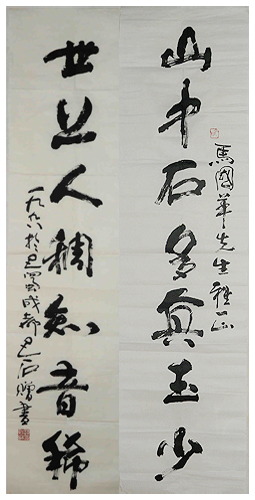 馬國華先生雅正
山中石多真玉少
世上人稠知音稀
一九九八於巴蜀成都巴石贈書